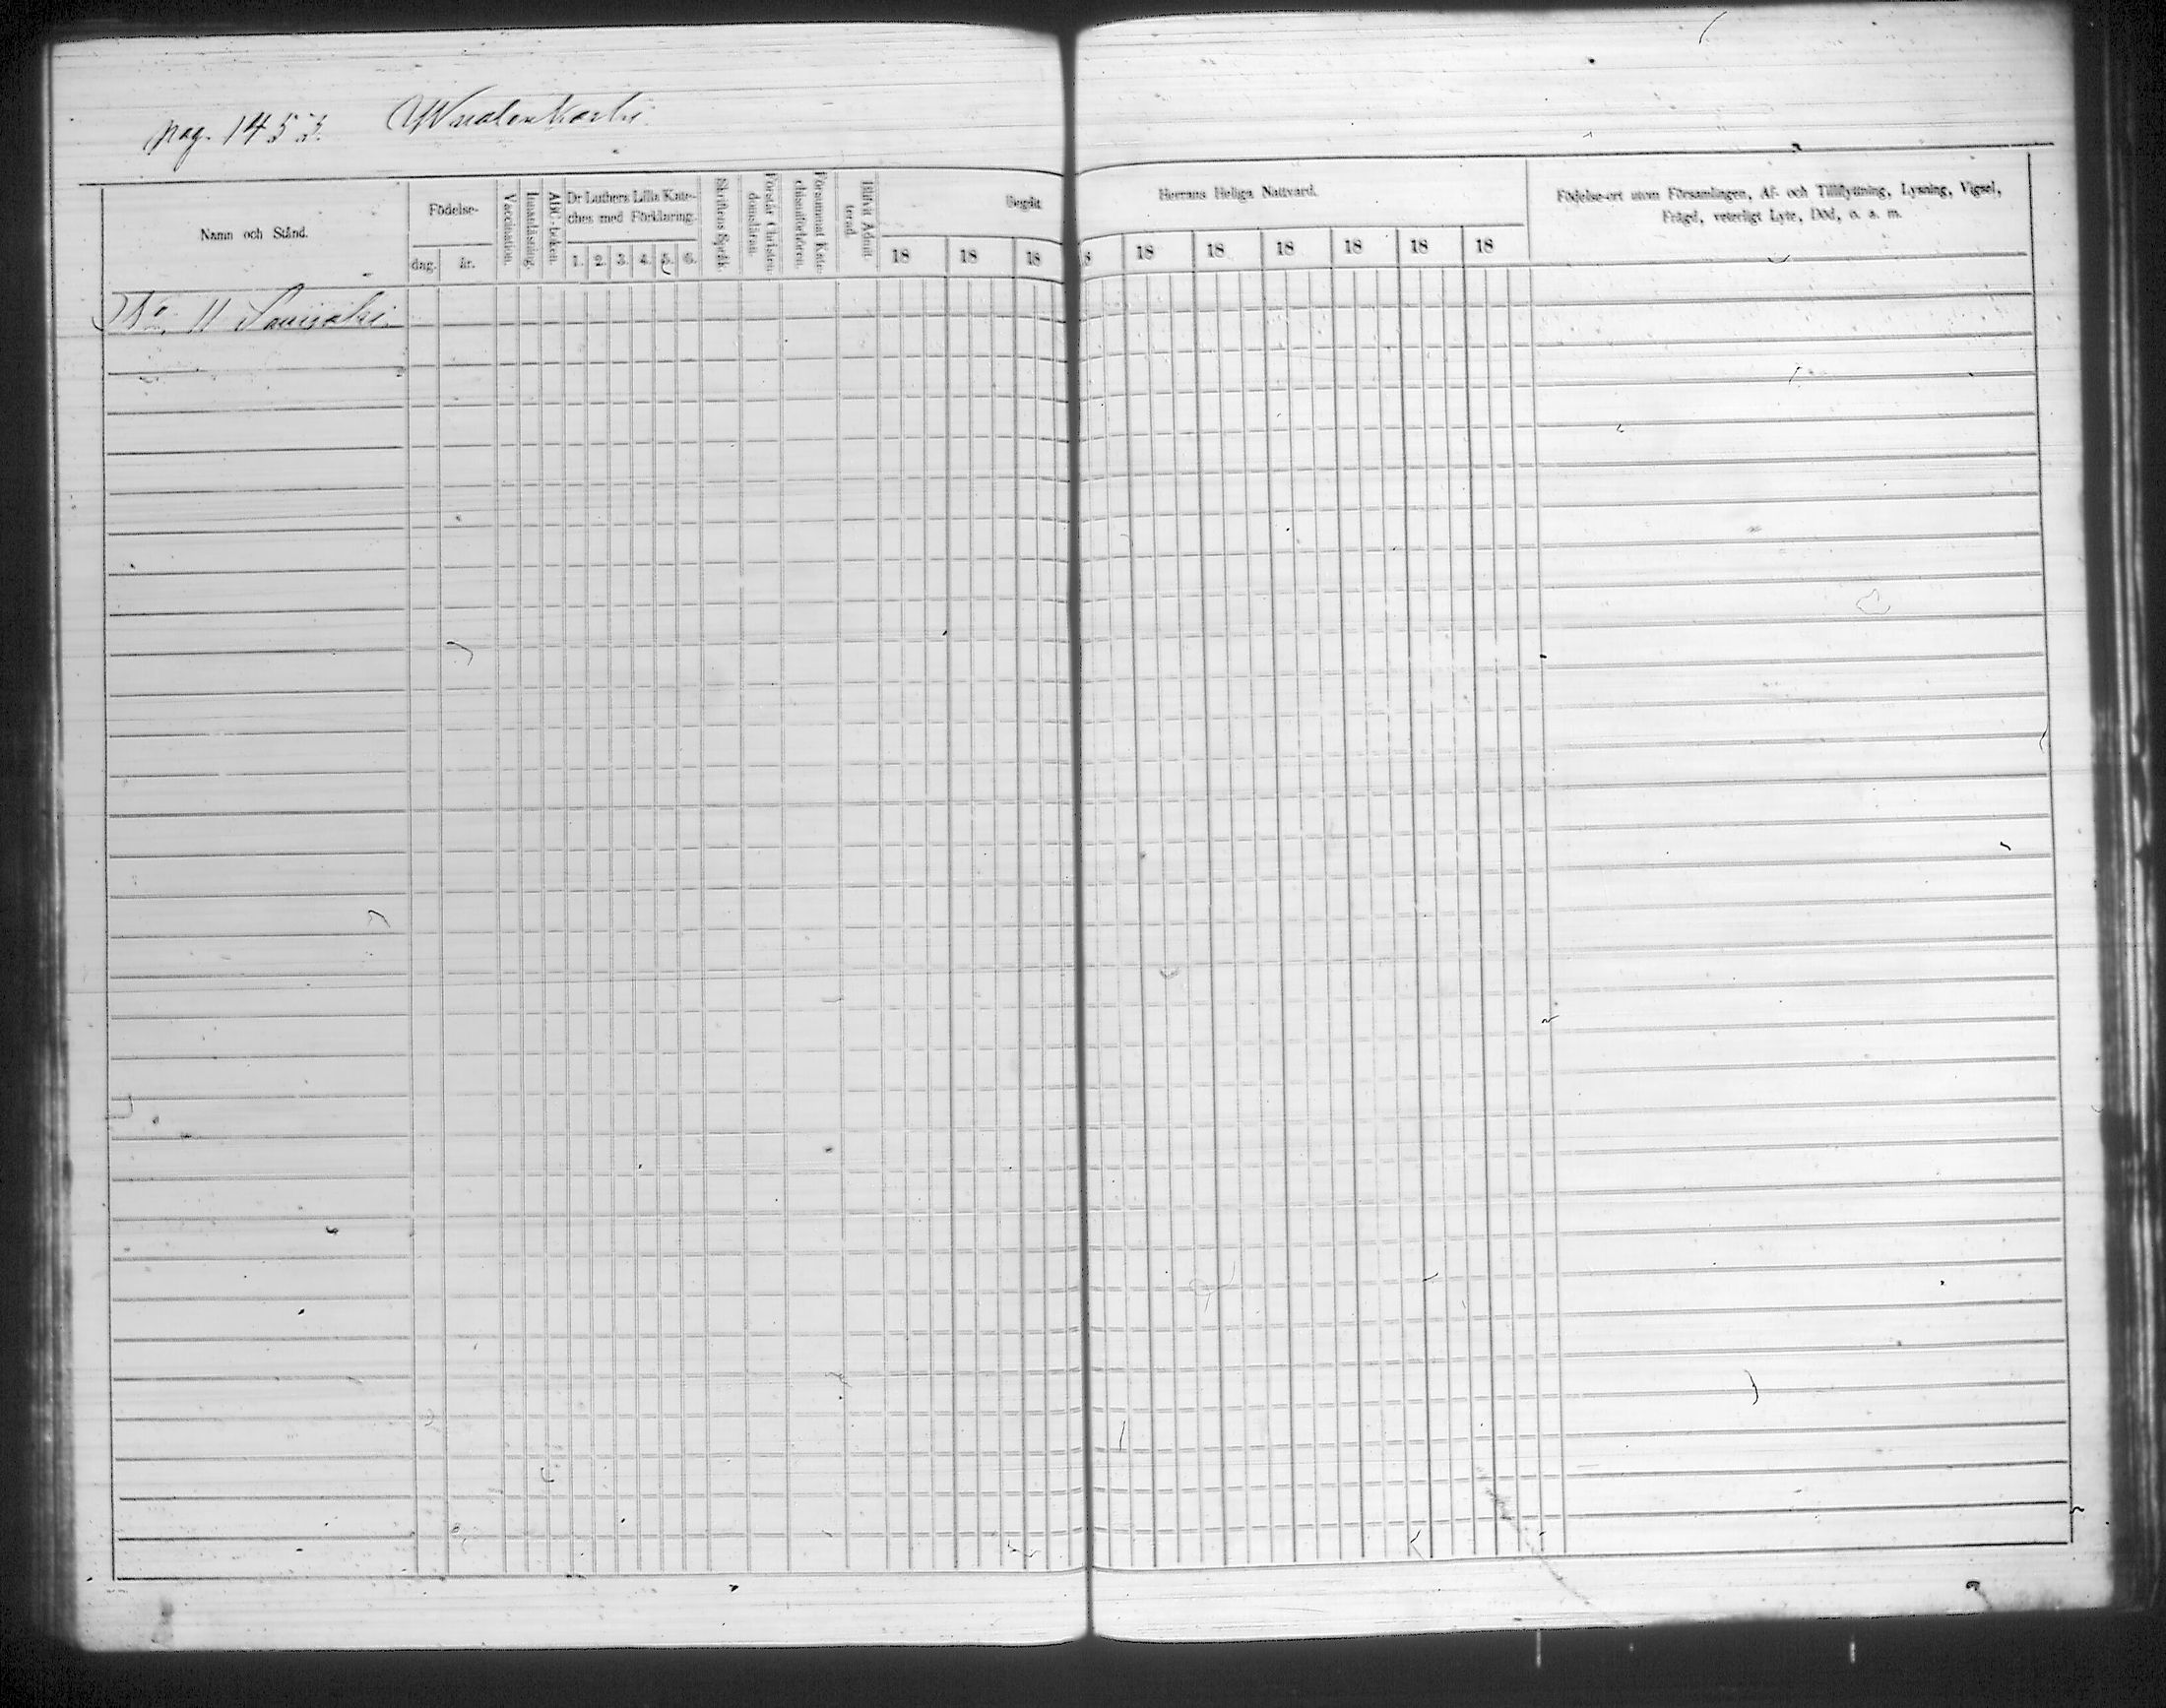 pag. 1453.
Namn och Stånd.
Födelse-
dag.
år.
Vaccination.
Innanläsning.
ABC-boken.
Dr Luthers Lilla Kate-
ches med Förklaring.
1. 2. 3. 4. 5. 6.
Skriftens Språk.
Förstår Christen-
domsläran.
Försummat Kate-
chismiförhören.
Blifvit Admit-
terad.
Begått
18 18 18
Herrans Heliga Nattvard.
18 18 18 18 18 18
Födelse-ort utom Församlingen, Af- och Tillflyttning, Lysning, Vigsel,
Frägd, veterligt Lyte, Död, o. s. m.
No. 11